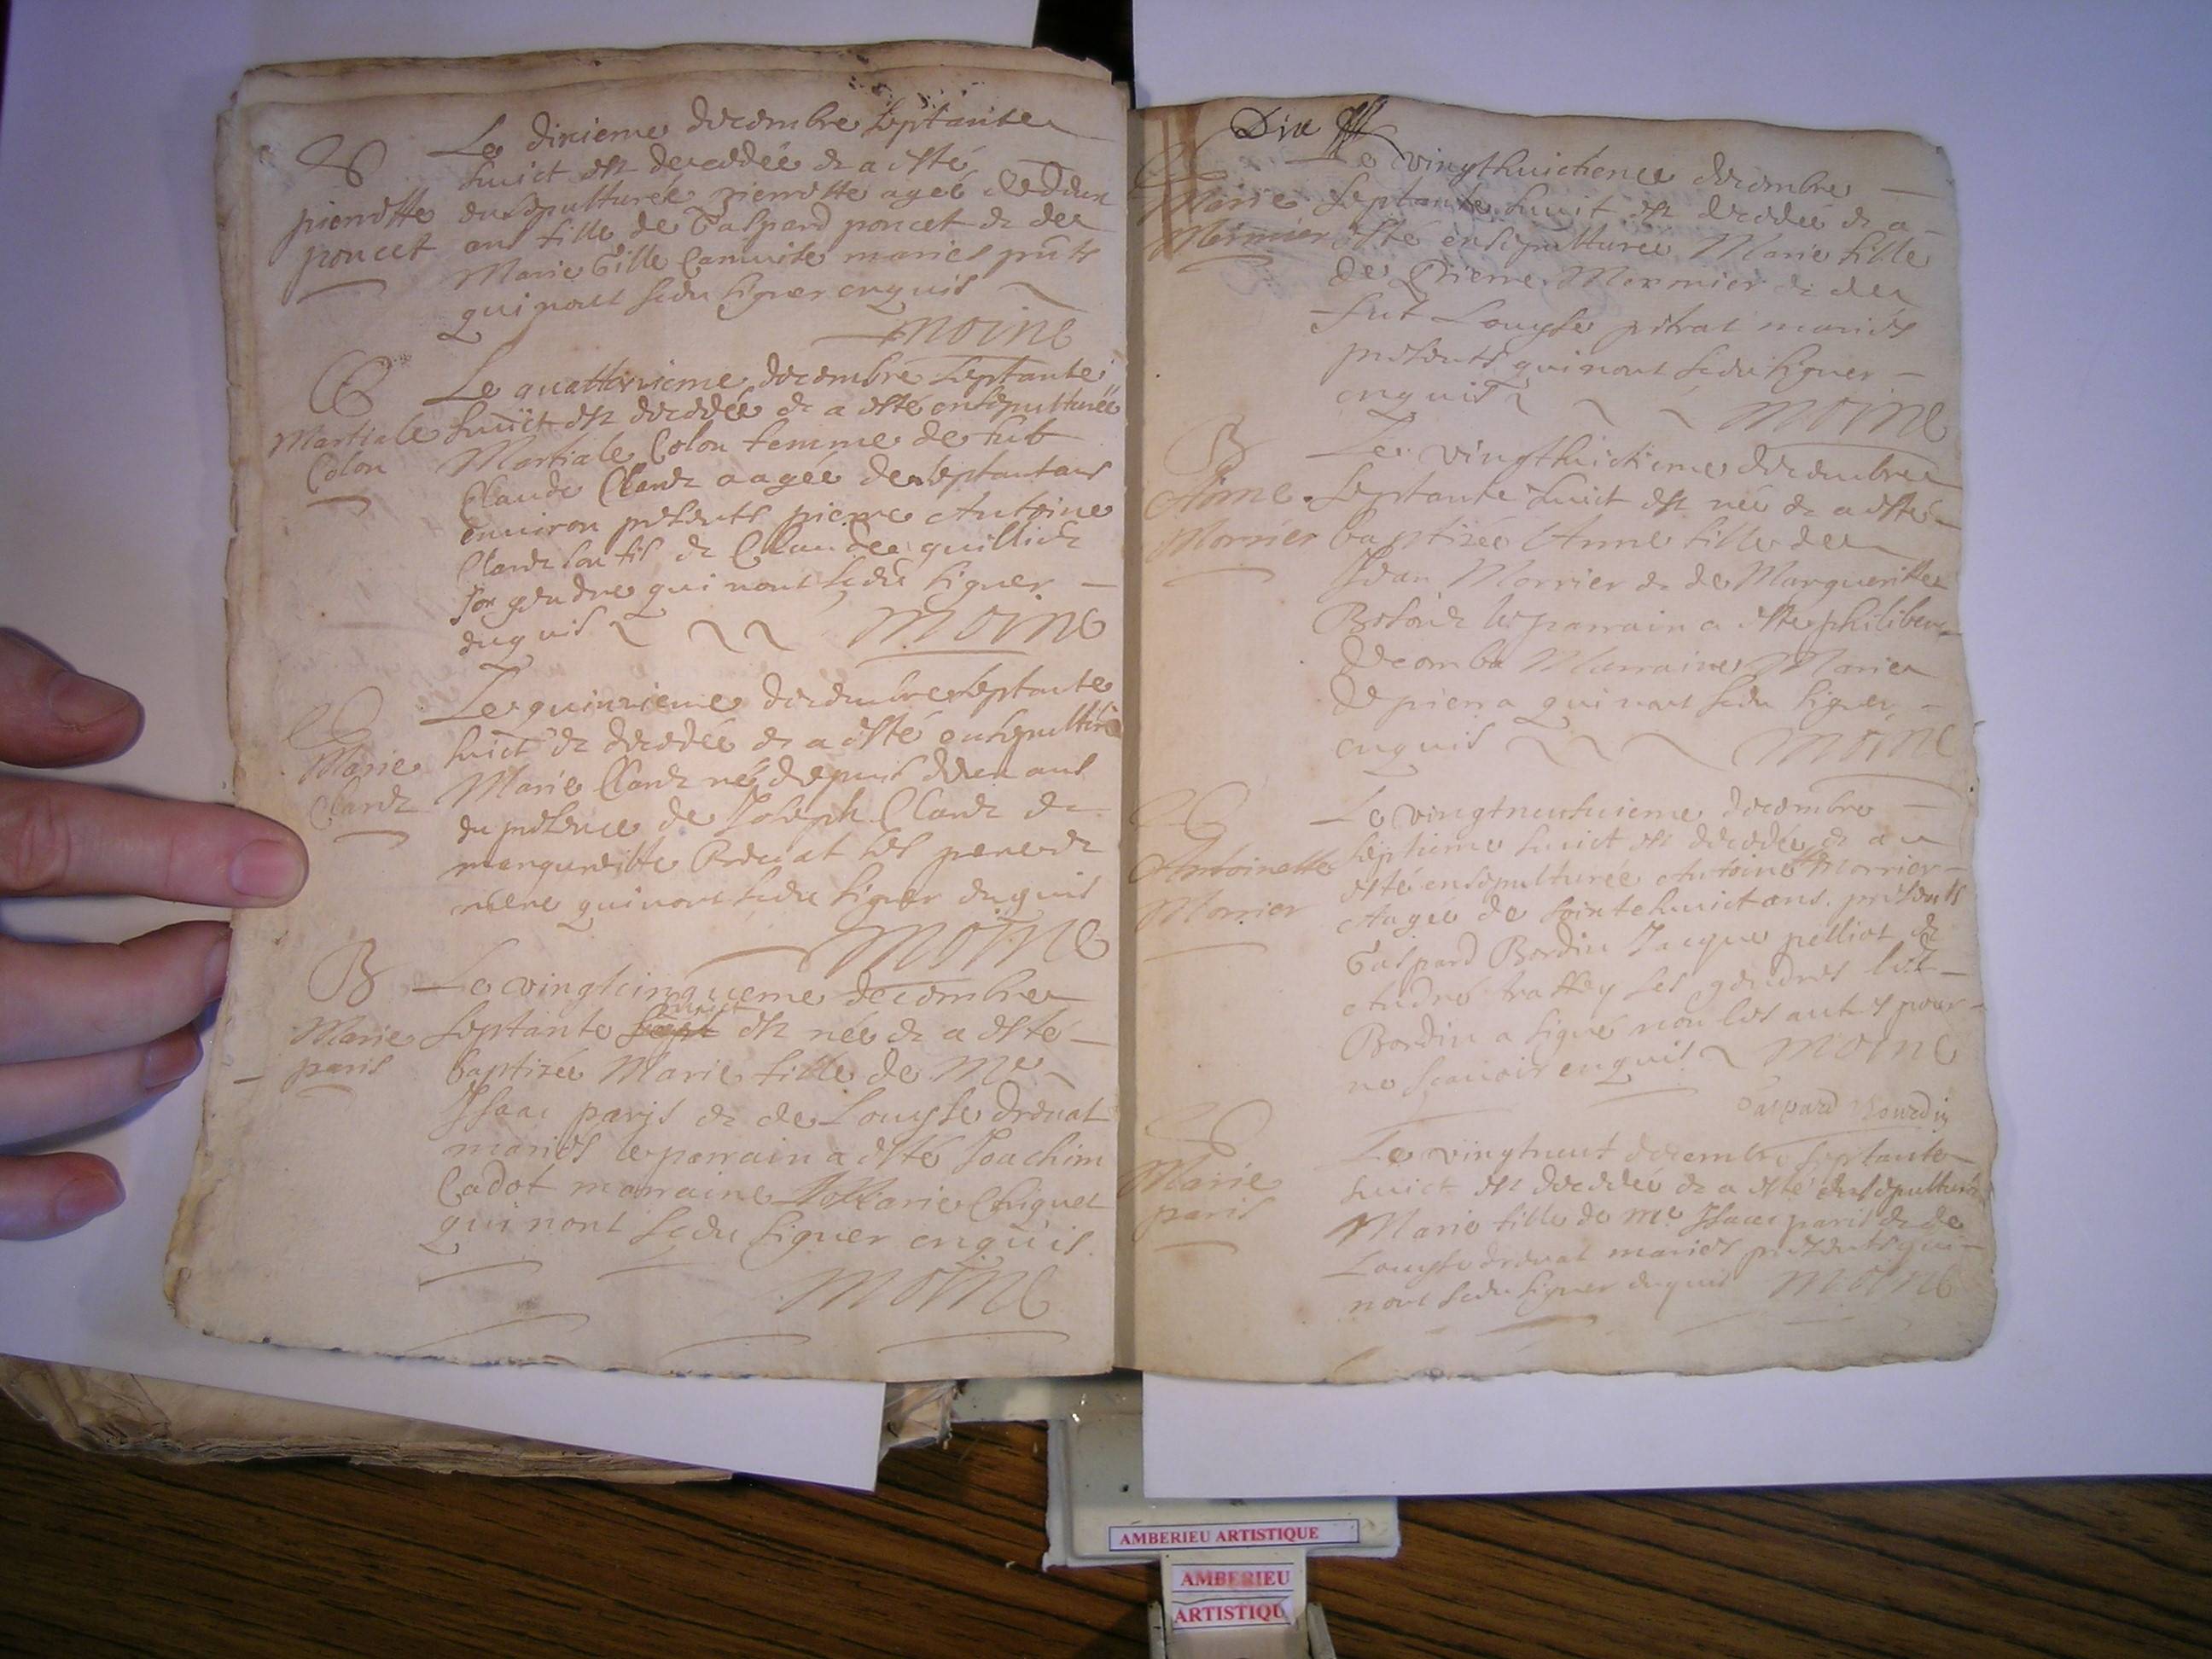 Le dixieme decembre septante
huict est decedée & a esté
pierrette
poncet
ensepulturée pierrette ageé de deux
ans fille de Gaspard poncet & de
Marie Gille Camuite mariés pnts
qui nont sceu signer enquis
Moine
Martiale
Colon
Le quattorzieme decembre septante
huict est decedée & a esté ensepulturée
Martiale Colon femme de fut
Claude aagée de septantans
environ presents pierre Antoine
son fils & Claude quillied
son gendre qui nont sceu signer
enquis Moine
Marie
Le quinzieme decembre septante
huict & decedée & a esté ensepulturée
Marie née depuis deux ans
en presence de Joseph &
margueritte ses pere &
mere qui nont sceu signer enquis
Moine
B
Marie
paris
Le vingtcinquieme decembre
huict
septante sept est née & a esté
baptizée Marie fille de Me
Isaac paris & de Louyse dreuat
mariés le parrain a esté Joachim
Cadot marraine Marie Chiquet
qui nont sceu signer enquis
Moine
Dix
Marie
Mermier
Le vingthuictieme decembre
septante huict est decedée & a
esté ensepulturée Marie fille
de Pierre Mermier & de
fut Louyse pitrat mariés
presents qui nont sceu signer
enquis Moine
B
Anne
Morrier
Le vingthuictieme decembre
septante huict est née & a esté
baptizée Anne fille de
Jean Morrier & de Margueritte
le parrain a esté philibert
Decombe Marraine Marie
Depierra qui nont sceu signer
enquis Moine
Antoinette
Morrier
Le vingtneufuieme decembre
septieme huict est decedée & a
esté ensepulturée Antoinette Morrier
Aagée de soixtehuictans presents
Gaspard Bordin Jacques pelliot &
André trassey ses gendres led
Bordin a signé non les autres pour
ne scauoir enquis Moine
Gaspard Bourdin
Marie
paris
Le vingtneuf decembre septante
huict est decedée & a esté ensepulturée
Marie fille de Me Isaac paris & de
Louyse dreuat mariés presents qui
nont sceu signer enquis Moine
AMBERIEU ARTISTIQUE
AMBERIEU
ARTISTIQU